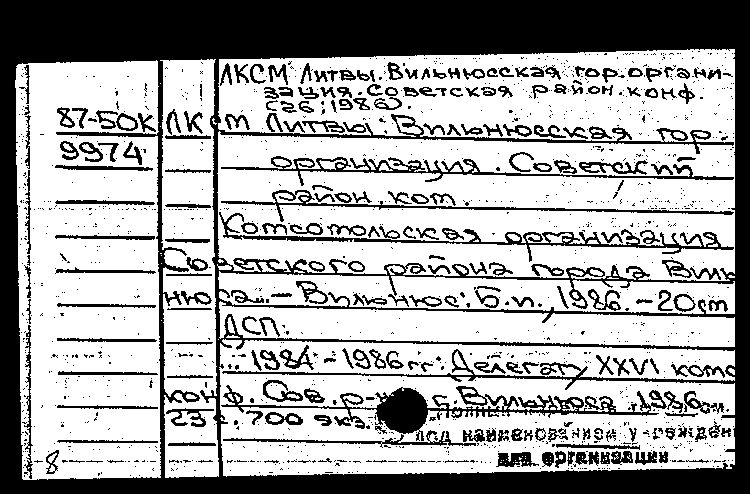 ЛКСМ Литвы. Вильнюсская гор. органи-
зация. Советская район. конф.
(26; 1986).
87-50К ЛКСМ Литвы. Вильнюсская гор.
9974 организация. Советский
район. ком.
Комсомольская организация
Советского района города Виль
нюса... – Вильнюс: Б.и., 1986. – 20 см
ДСП.
... 1984 – 1986 гг: Делегату XXVI комс
конф. Сов. р-на г. Вильнюса 1986.
23 с. 700 экз. см.
под наименованием учрежден
или организации
8